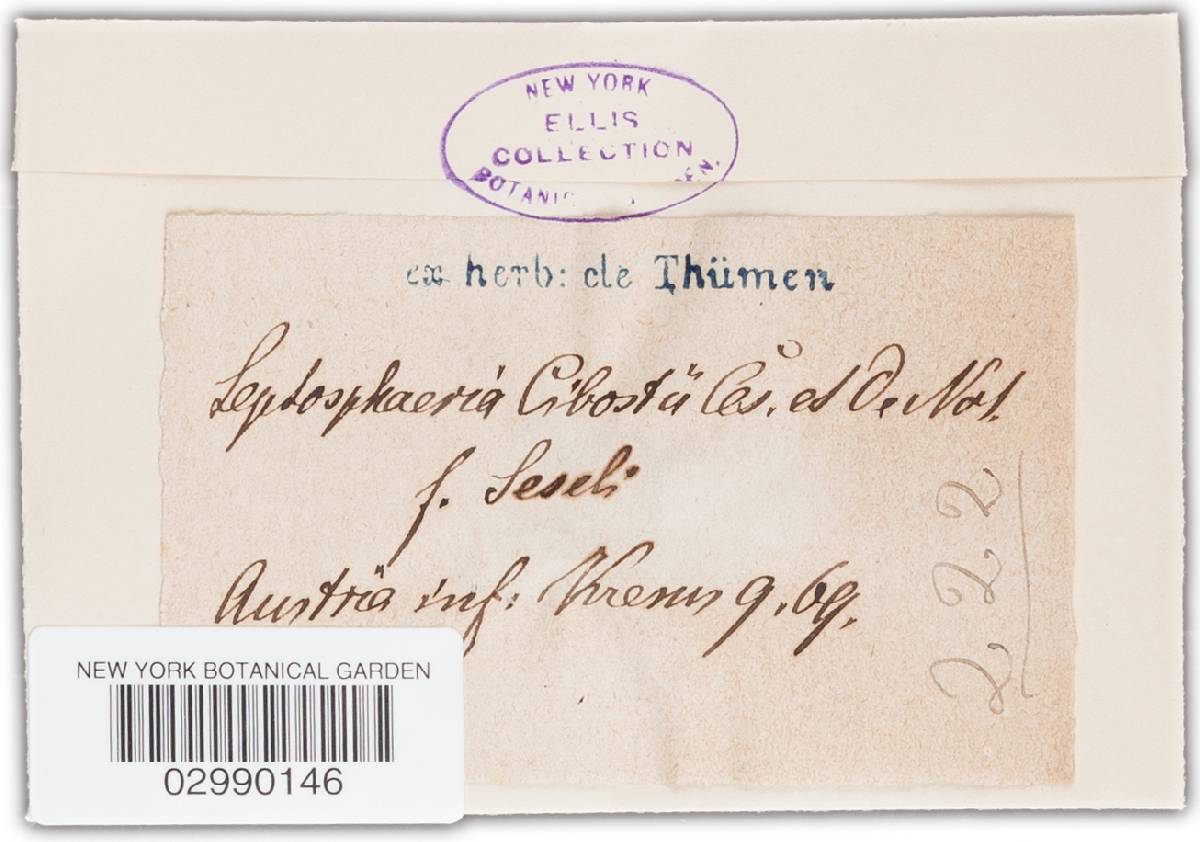 NEW YORK
ELLIS
COLLECTION
BOTANIC
ex herb: de Thümen
Leptosphaeria Cibostii Ces. et De Not.
f. Seseli
Austria inf: Krems 9. 69.
222
NEW YORK BOTANICAL GARDEN
02990146